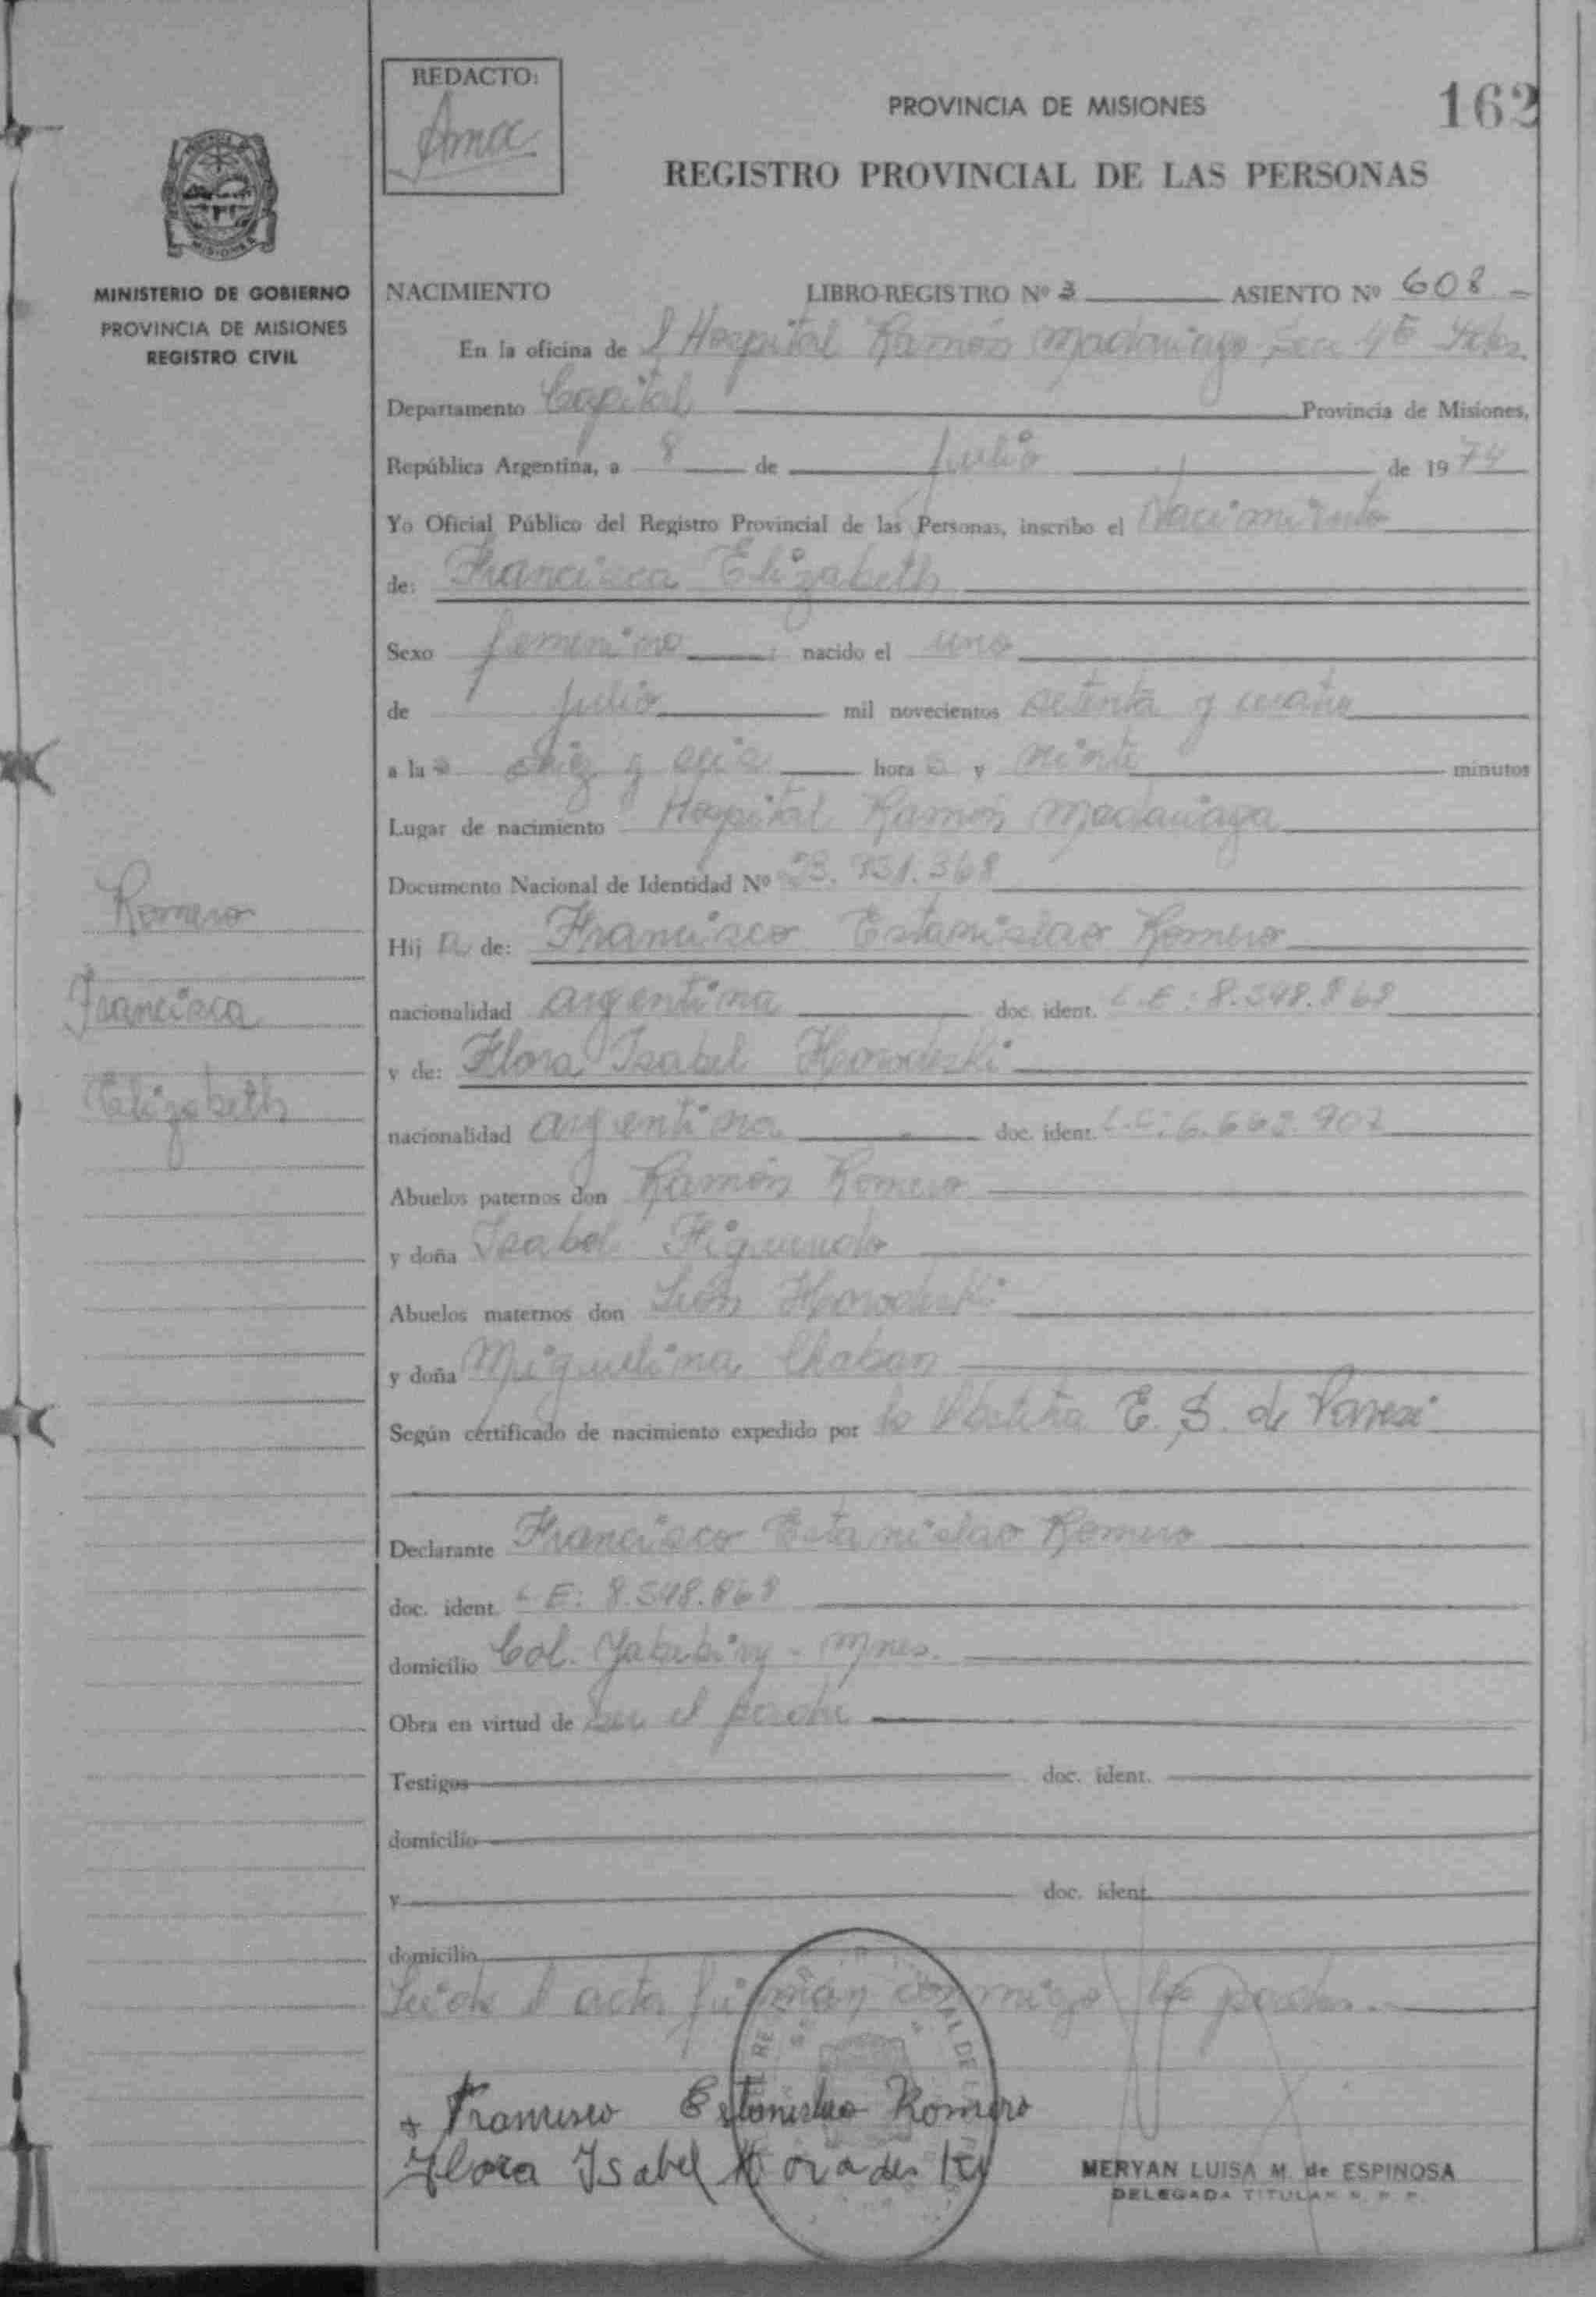 REDACTO:
PROVINCIA DE MISIONES
162
REGISTRO PROVINCIAL DE LAS PERSONAS
MISIONES
MINISTERIO DE GOBIERNO
PROVINCIA DE MISIONES
REGISTRO CIVIL
NACIMIENTO LIBRO-REGISTRO Nº 3 ASIENTO Nº 608
En la oficina de l Hospital Ramón Madariaga
Departamento Capital Provincia de Misiones,
República Argentina, a 8 de julio de 1974
Yo Oficial Público del Registro Provincial de las Personas, inscribo el Nacimiento
de: Francisca Elizabeth
Sexo femenino nacido el uno
de julio mil novecientos setenta y cuatro
a las diez y seis horas y veinte minutos
Lugar de nacimiento Hospital Ramón Madariaga
Documento Nacional de Identidad Nº
Romero
Francisca
Elizabeth
Hija de: Francisco Estanislao Romero
nacionalidad argentina doc. ident. L.E: 8.548.868
y de: Flora Isabel Horodeski
nacionalidad argentina doc. ident. L.C: 6.662.907
Abuelos paternos don Ramón Romero
y doña Isabel Figueredo
Abuelos maternos don León Horodeski
y doña Miguelina Chaban
Según certificado de nacimiento expedido por la Obstetra E. S. de
Declarante Francisco Estanislao Romero
doc. ident. L E: 8.548.868
domicilio Col. Yabebiry - Mnes.
Obra en virtud de ser el padre
Testigos doc. ident.
domicilio
y doc. ident.
domicilio
Leida el acta firman conmigo los padres.-
Francisco Estanislao Romero
Flora Isabel Horodeski
MERYAN LUISA M. de ESPINOSA
DELEGADA TITULAR R. P. P.